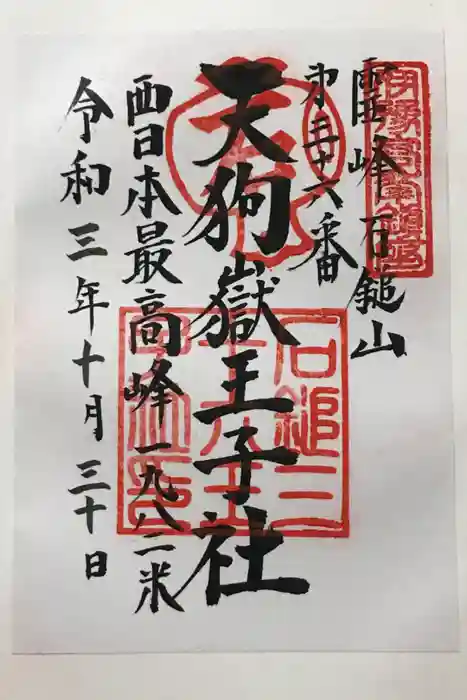 霊峰石鎚山
第三十六番
天狗嶽王子社
西日本最高峰一九八二米
令和三年十月三十日
石鎚三
十六王
子社印